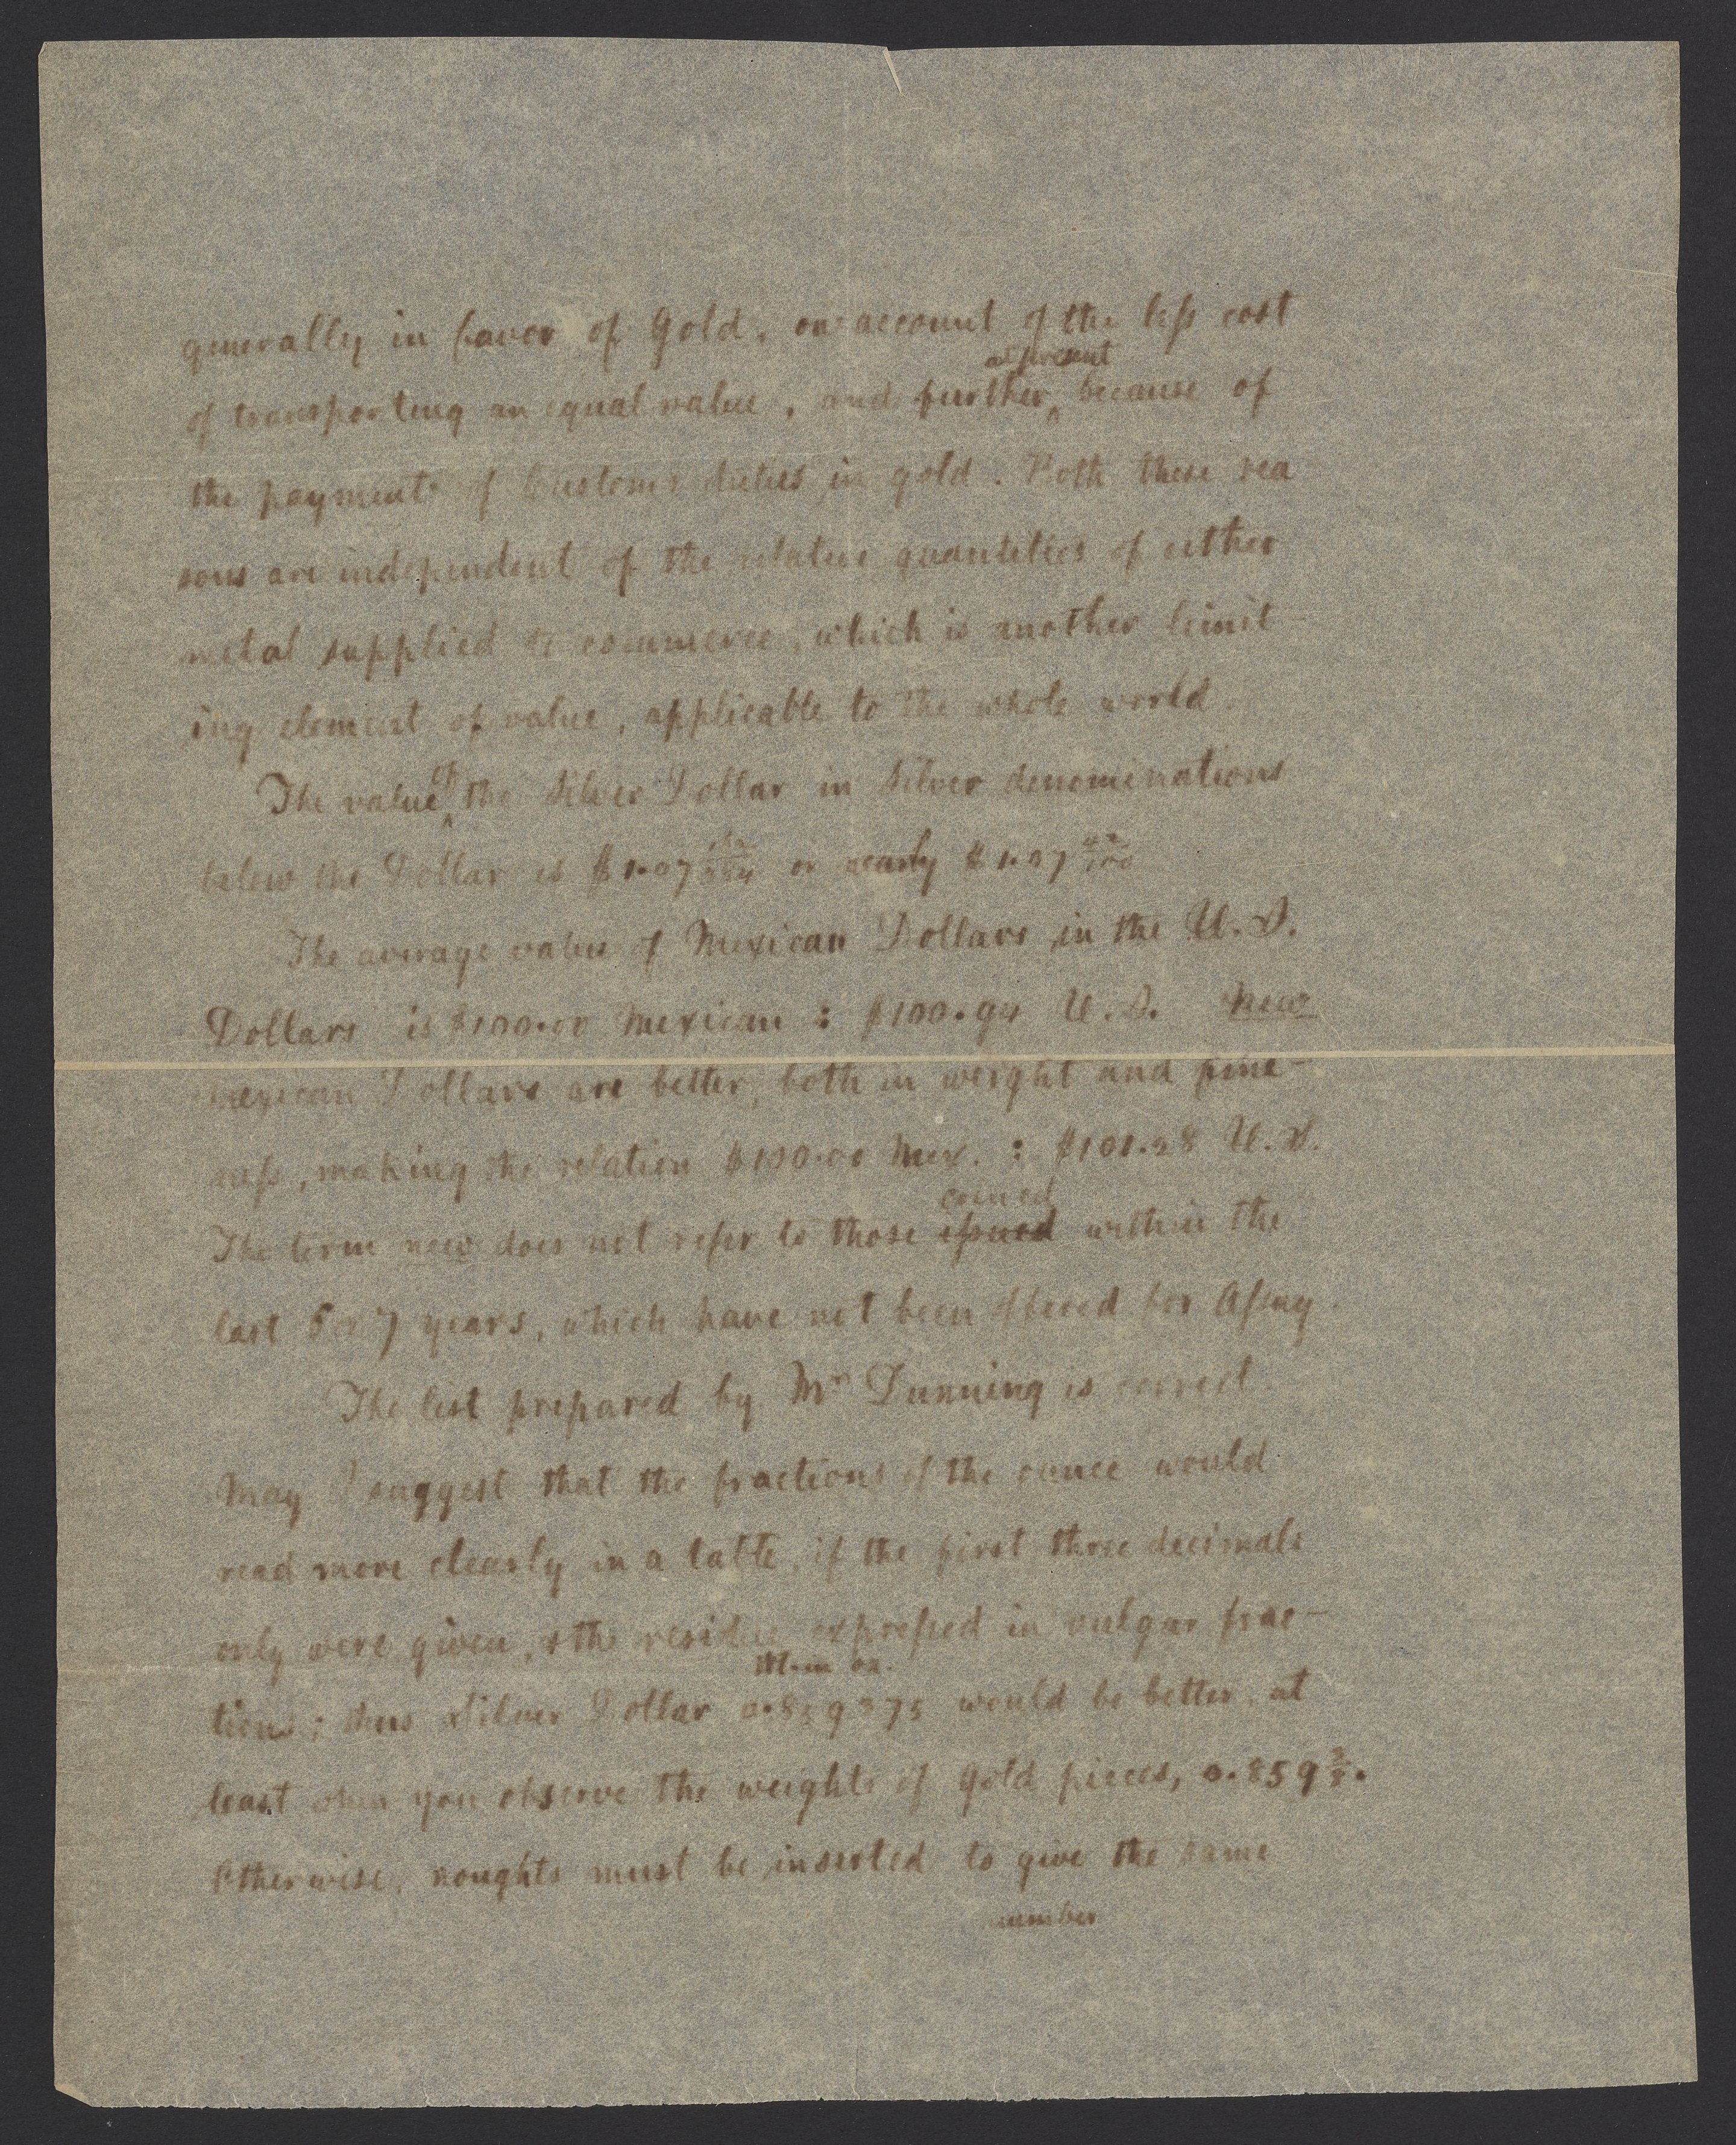 generally in favor of Gold, on account of the less cost
at present
of transporting an equal value, and further ‸ because of
the payment of Customs duties in gold. Both these rea
sons are independent of the relative quantities of either
metal supplied to commerce, which is another limit-
ing element of value, applicable to the whole world.
The value ‸of the Silver Dollar in Silver denominations
below the Dollar is $1.07 or nearly $1.07
The average value of Mexican Dollars in the U.S.
Dollars is $100.00 Mexican : $100.94 U.S. New
Mexican Dollars are better, both in weight and fine-
ness, making the relation $100.00 Mex. : $101.28 U.S.
coined
The term new does not refer to those issued within the
last 5 or 7 years, which have not been offered for Assay.
The list prepared by Mr Dunning is correct.
May I suggest that the fractions of the ounce would
read more clearly in a table, if the first three decimals
only were given, & the residue expressed in vulgar frac-
tions; thus Silver Dollar 0.859375 would be better, at
least when you observe the weights of Gold pieces, 0.859 3/8.
Otherwise, noughts must be inserted to give the same
number